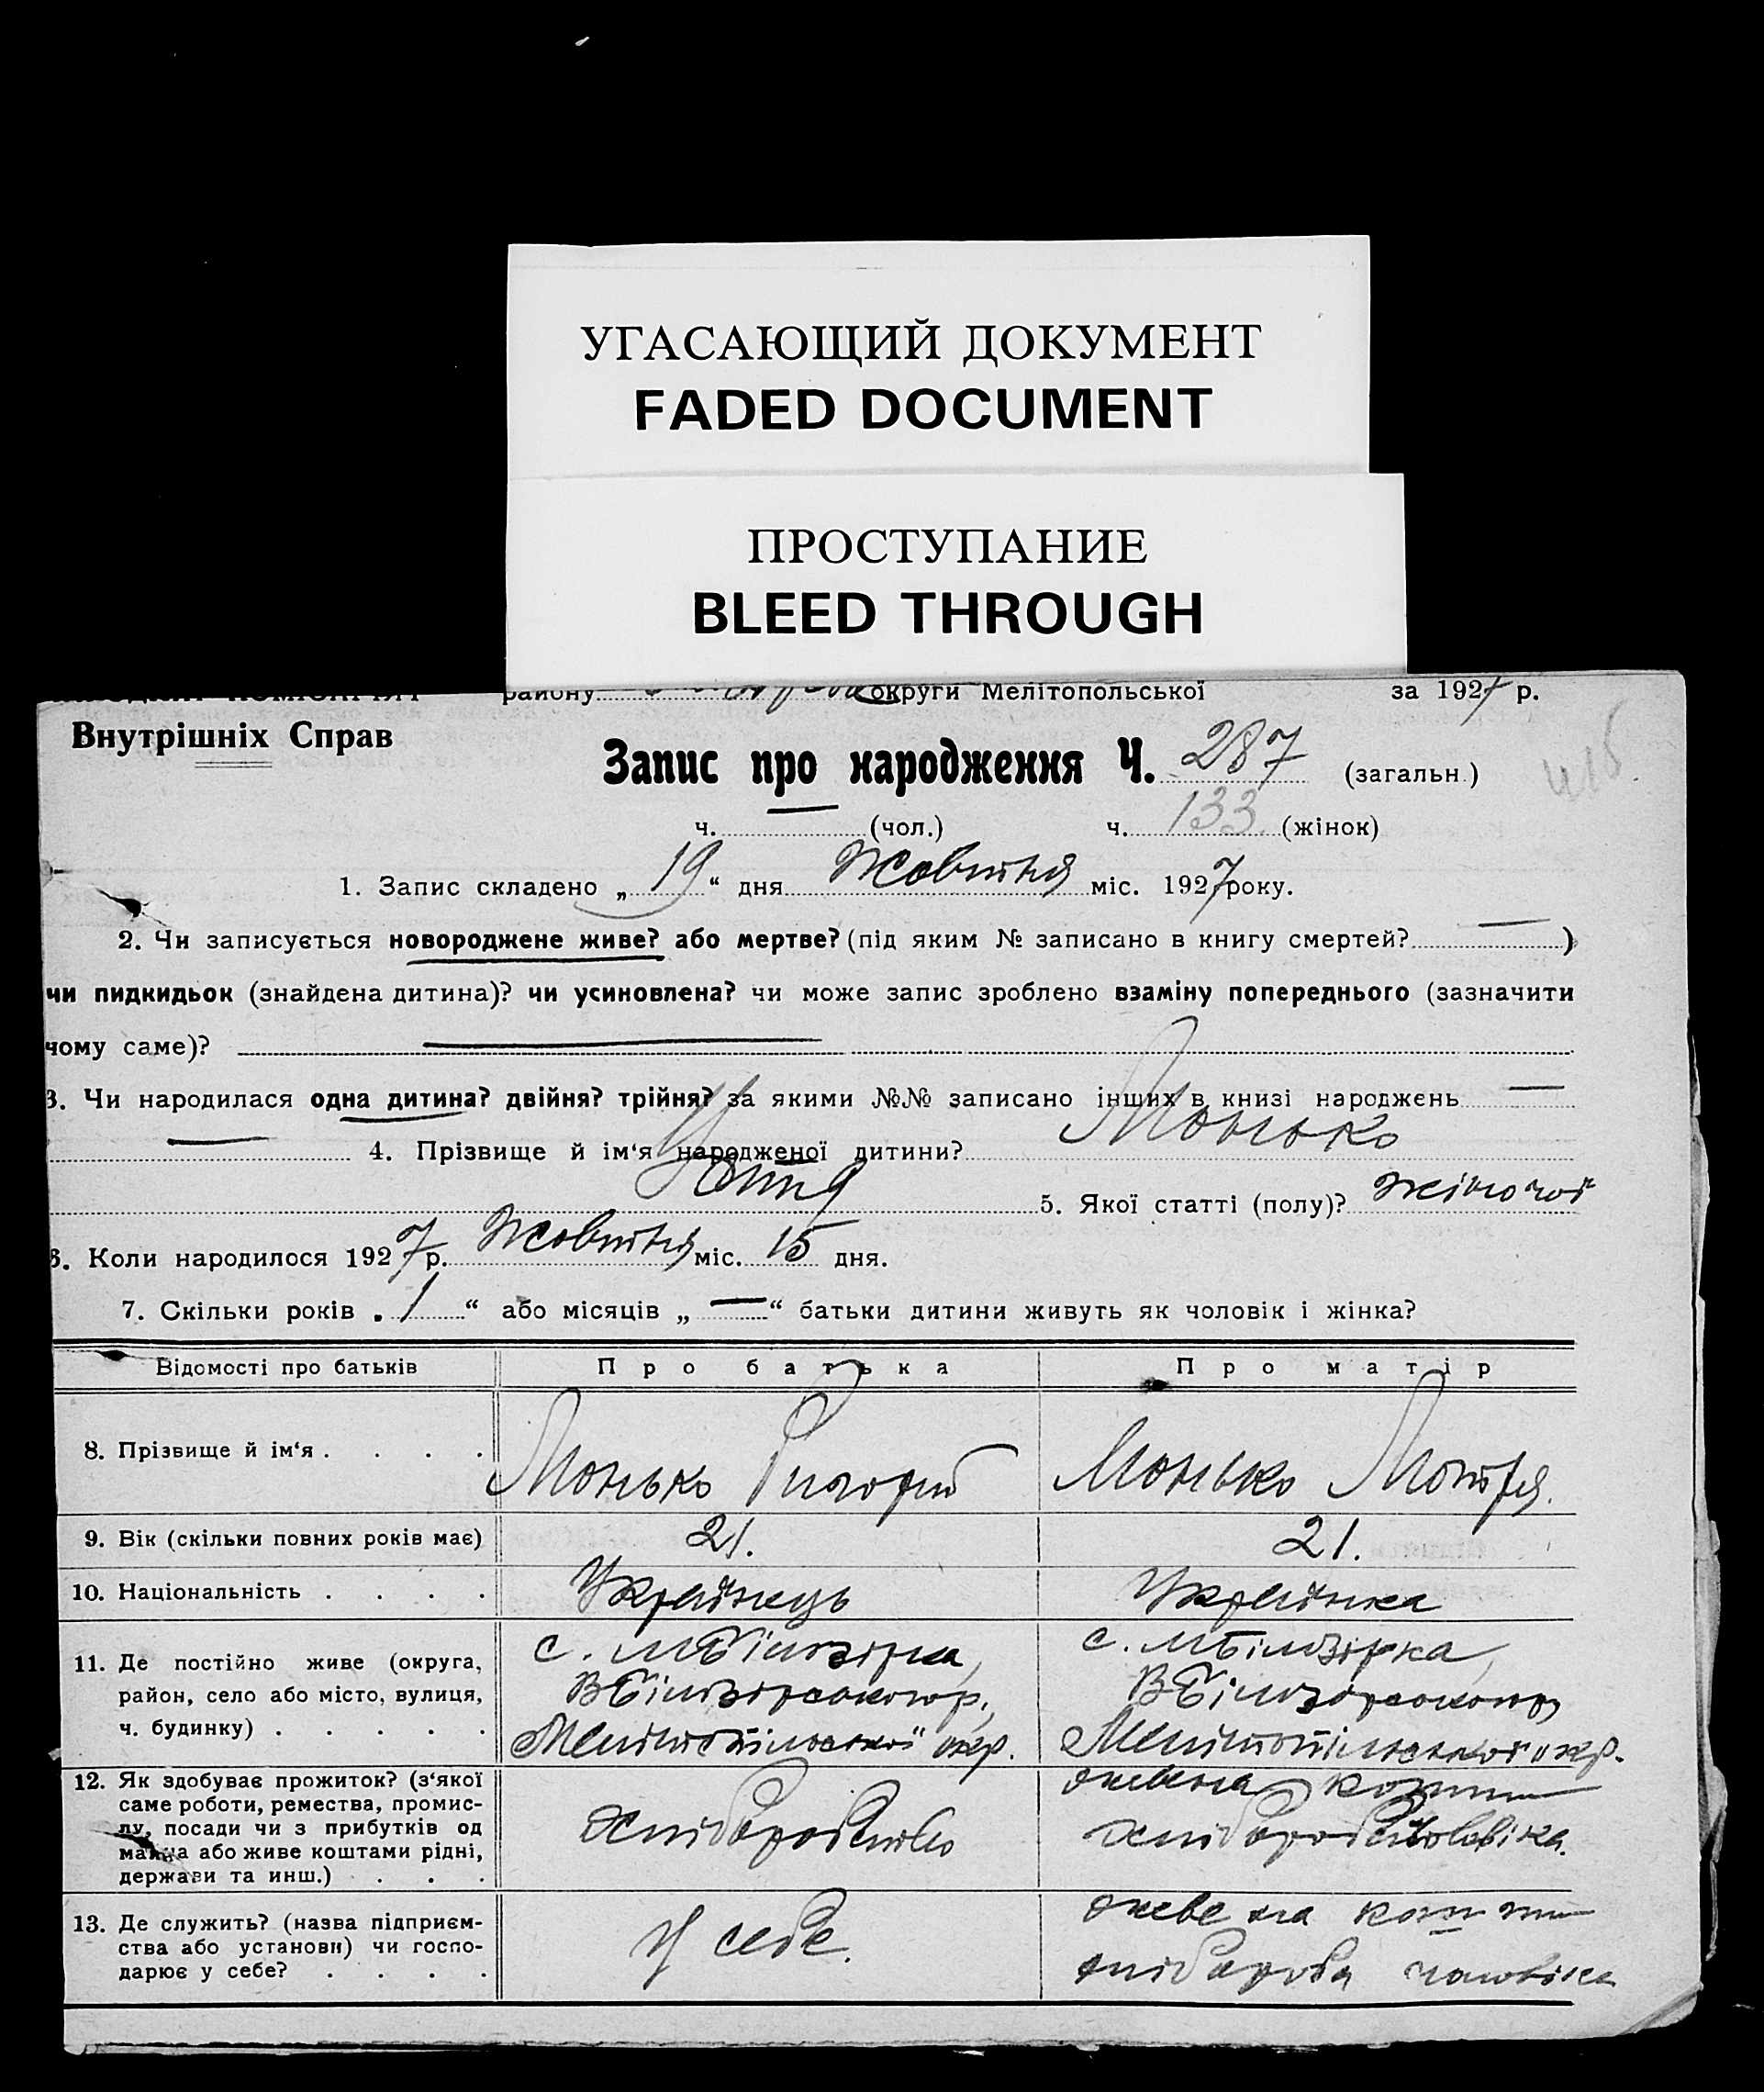 УГАСАЮЩИЙ ДОКУМЕНТ
FADED DOCUMENT
ПРОСТУПАНИЕ
BLEED THROUGH
району округи Мелітопольської за 1927 р.
Внутрішніх Справ
Запис про народження Ч. 287 (загальн.)
ч. — (чол.) ч. 133 (жінок)
1. Запис складено „19“ дня Жовтня міс. 1927 року.
2. Чи записується новороджене живе? або мертве? (під яким № записано в книгу смертей? — )
чи пидкидьок (знайдена дитина)? чи усиновлена? чи може запис зроблено взаміну попереднього (зазначити
чому саме)? —
3. Чи народилася одна дитина? двійня? трійня? за якими №№ записано інших в книзі народжень —
— 4. Прізвище й ім‘я народженої дитини? Монько
5. Якої статті (полу)? жіночої
6. Коли народилося 1927 р. Жовтня міс. 15 дня.
7. Скільки років „1“ або місяців „—“ батьки дитини живуть як чоловік і жінка?
Відомості про батьків Про батька Про матір
8. Прізвище й ім‘я . . . . Монько Григорій Монько Мотря.
9. Вік (скільки повних років має) 21. 21.
10. Національність . . . . Українець Українка
11. Де постійно живе (округа, с. мБілозірка, с. мБілозірка,
район, село або місто, вулиця, ВБілозірського р., ВБілозірського р,
ч. будинку) . . . . . Мелітопільської окр. Мелітопільської окр.
12. Як здобуває прожиток? (з‘якої
саме роботи, ремества, промис-
лу, посади чи з прибутків од
майна або живе коштами рідні,
держави та инш.) . . .
хліборобство
живе на кошти
хлібороба чоловіка.
13. Де служить? (назва підприєм-
ства або установи) чи госпо-
дарює у себе? . . . .
У себе.
живе на кошти
хлібороба чоловіка